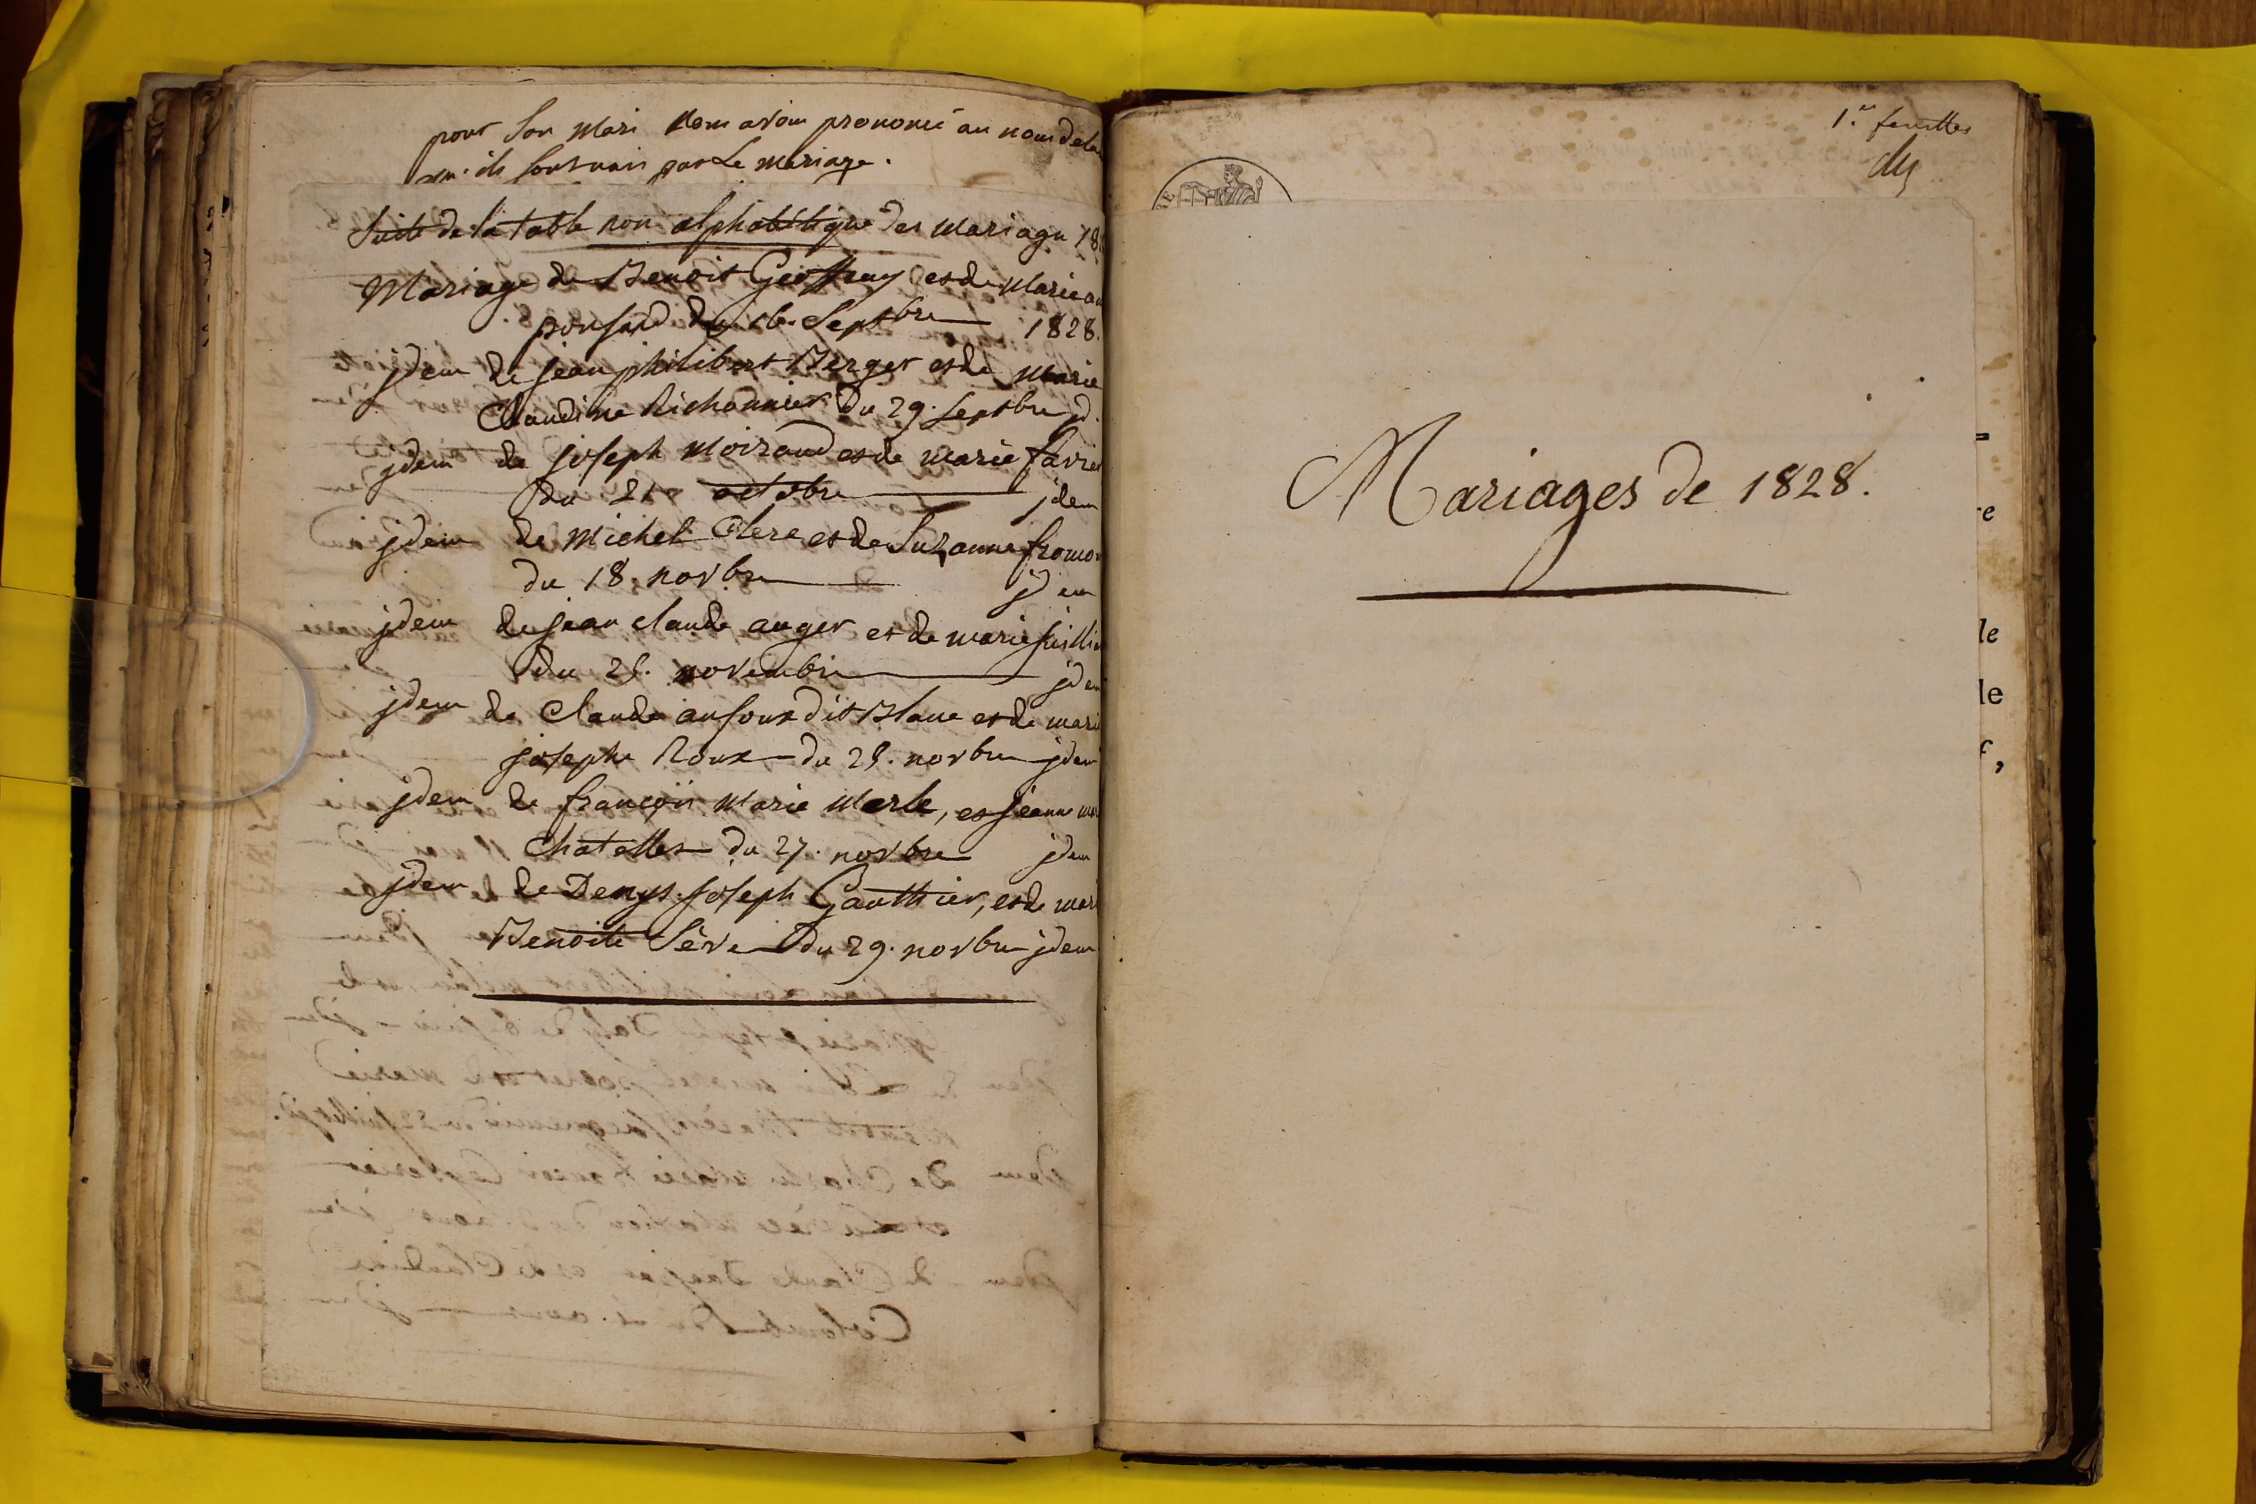 pour Son Mari Nous avons prononcé au nom de la
qu'ils sont unis par Le mariage.
Suite de la table non alphabétique des mariages 18
Mariage de Benoit Geoffray et de Marie
ponsard du 16. Septbre 1828.
jdem de jean philibert Berger et de Marie
Claudine Richonnier du 29. Septbre jd.
jdem de joseph Moiraud et de marie favre
du 21 octobre jdem
jdem de Michel Clere et de Suzanne fromon
du 18. novbre jdem
jdem de jean claude auger et de marie
du 25. novembre jdem
jdem de Claude dit Blanc et de mari
josephe Roux du 25. novbre jdem
jdem de françois Marie Merle, et jeanne
Chatelles du 27. novbre jdem
jdem de Denys. joseph Gauthier, et de mari
Benoite Sève du 29. novbre jdem
1.er feuillet
Mariages de 1828.
e
le
le
,